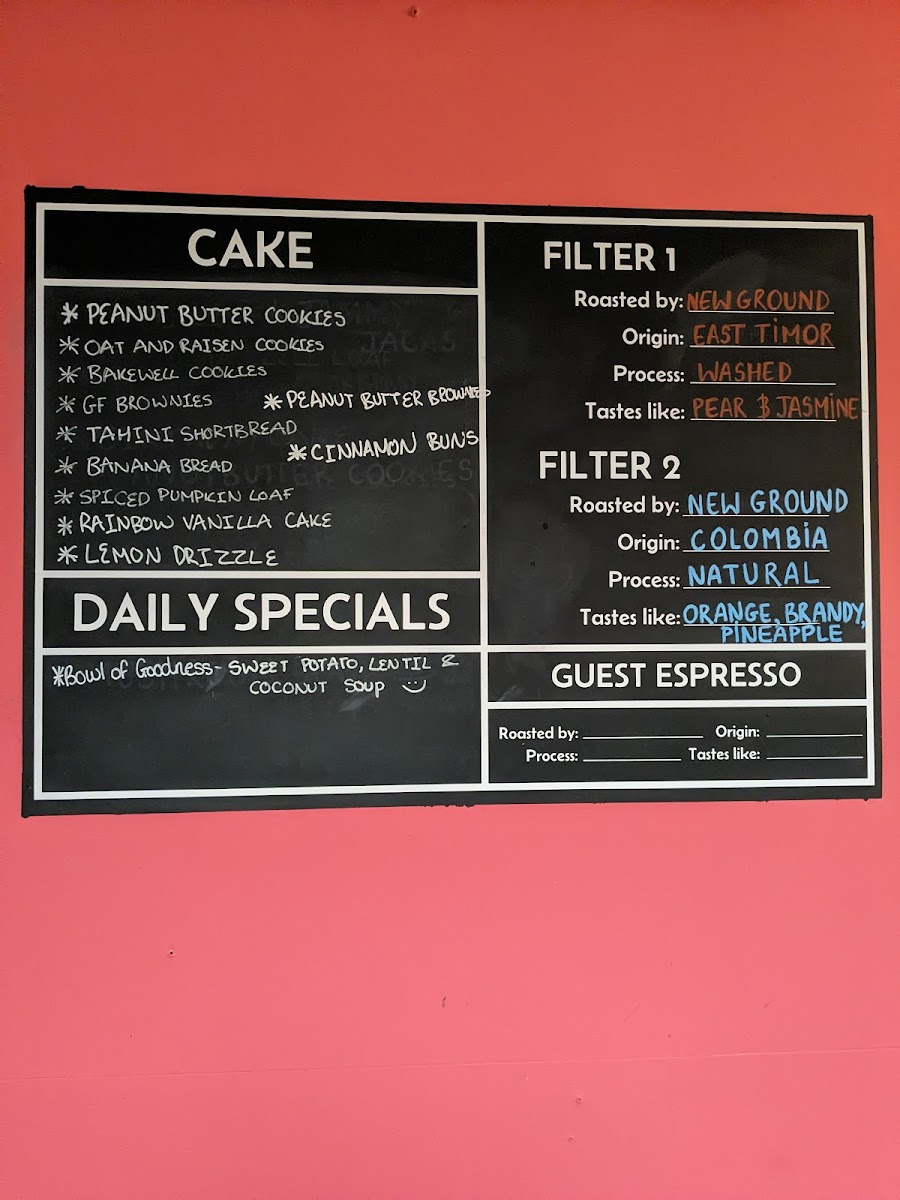 CAKE
* PEANUT BUTTER COOKIES
* OAT AND RAISEN COOKIES
* BAKEWELL COOKIES
* GF BROWNIES
* PEANUT BUTTER BROWNIES
* TAHINI SHORTBREAD
* CINNAMON BUNS
* BANANA BREAD
* SPICED PUMPKIN LOAF
* RAINBOW VANILLA CAKE
* LEMON DRIZZLE
DAILY SPECIALS
*Bowl of Goodness - SWEET POTATO, LENTIL &
COCONUT SOUP
FILTER 1
Roasted by: NEW GROUND
Origin: EAST TIMOR
Process: WASHED
Tastes like: PEAR & JASMINE
FILTER 2
Roasted by: NEW GROUND
Origin: COLOMBIA
Process: NATURAL
Tastes like: ORANGE, BRANDY,
PINEAPPLE
GUEST ESPRESSO
Roasted by: Origin:
Process: Tastes like: